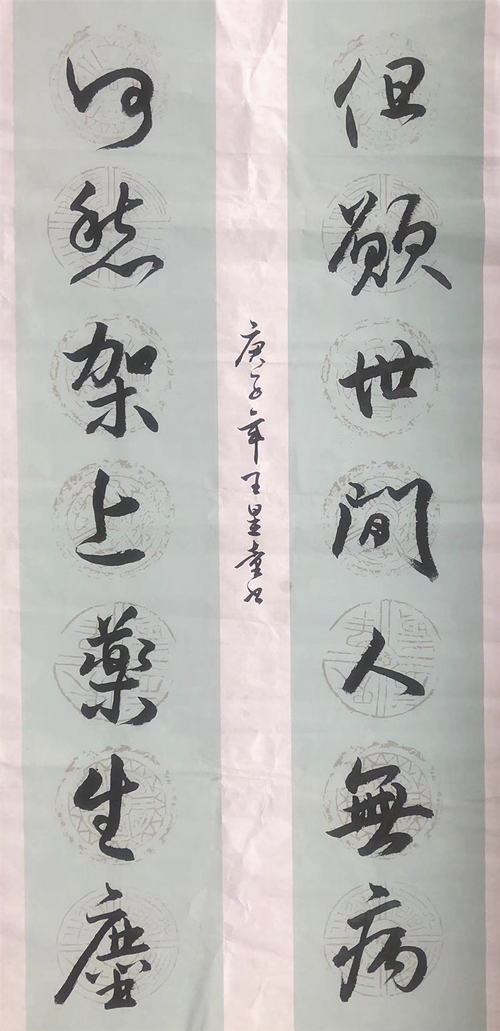 但願世間人無病
何愁架上藥生塵
庚子年王星童书